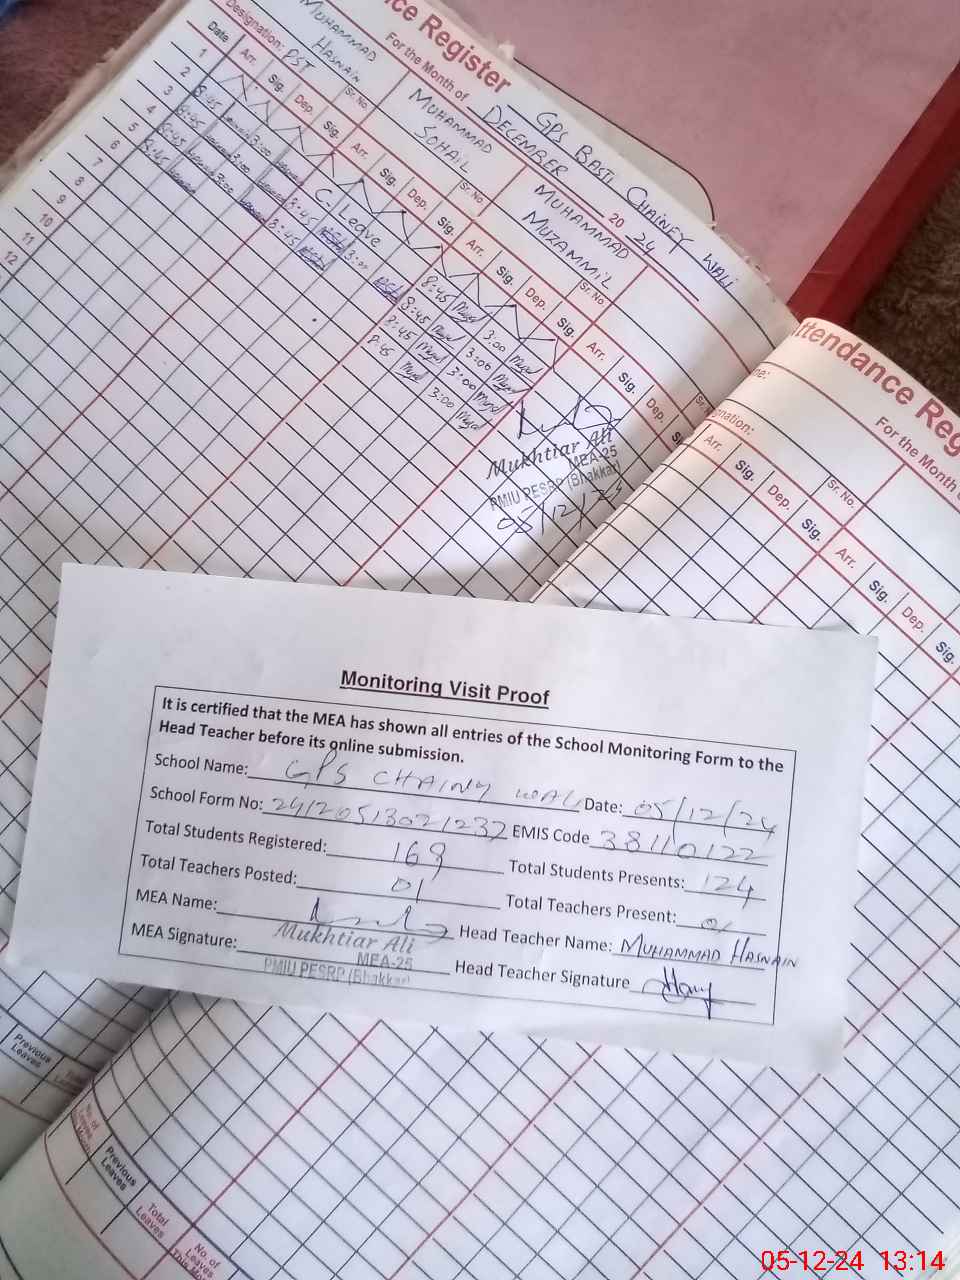 ce Register
GPS BASTI CHAINEY WALI
For the Month of DECEMBER 20 24
MUHAMMAD HASNAIN
MUHAMMAD SOHAIL
MUHAMMAD MUZAMMIL
Designation: PST
Sr. No.
Sr. No.
Sr. No.
Date Arr. Sig. Dep. Sig. Arr. Sig. Dep. Sig. Arr. Sig. Dep. Sig. Arr. Sig. Dep.
1
2
3
4
5
6
7
8
9
10
11
12
8:45 3:00
8:45 3:00
8:45 3:00
8:45
C. Leave
8:45 3:00
8:45
8:45 3:00
8:45 3:00
8:45 3:00
8:45 3:00
Mukhtiar Ali
MEA-25
PMIU PESRP (Bhakkar)
05/12/24
ttendance Reg
For the Month
gnation:
Sr. No.
Arr. Sig. Dep. Sig. Arr. Sig. Dep. Sig.
Monitoring Visit Proof
It is certified that the MEA has shown all entries of the School Monitoring Form to the
Head Teacher before its online submission.
School Name: GPS CHAINY WALI Date: 05/12/24
School Form No: 24120513021237 EMIS Code 38110122
Total Students Registered: 169 Total Students Presents: 124
Total Teachers Posted: 01 Total Teachers Present: 01
MEA Name: Head Teacher Name: MUHAMMAD HASNAIN
MEA Signature: Mukhtiar Ali Head Teacher Signature
MEA-25
PMIU PESRP (Bhakkar)
Previous Leaves
No. of Leaves This Month
Previous Leaves
Total Leaves
No. of Leaves This Mon
05-12-24 13:14